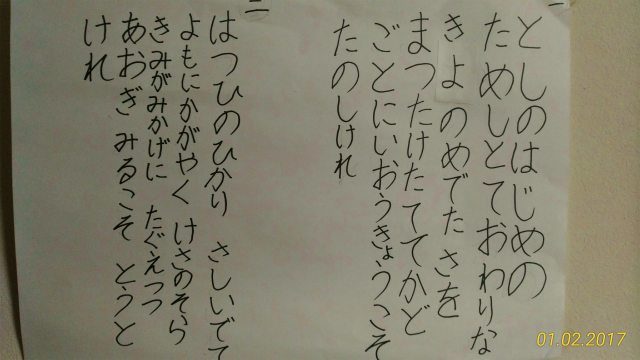 一
としのはじめの
ためしとておわりな
きよのめでたさを
まつたけたててかど
ごとにいおうきょうこそ
たのしけれ
二
はつひのひかり さしいでて
よもにかがやく けさのそら
きみがみかげに たぐえつつ
あおぎみるこそ とうと
けれ
01.02.2017